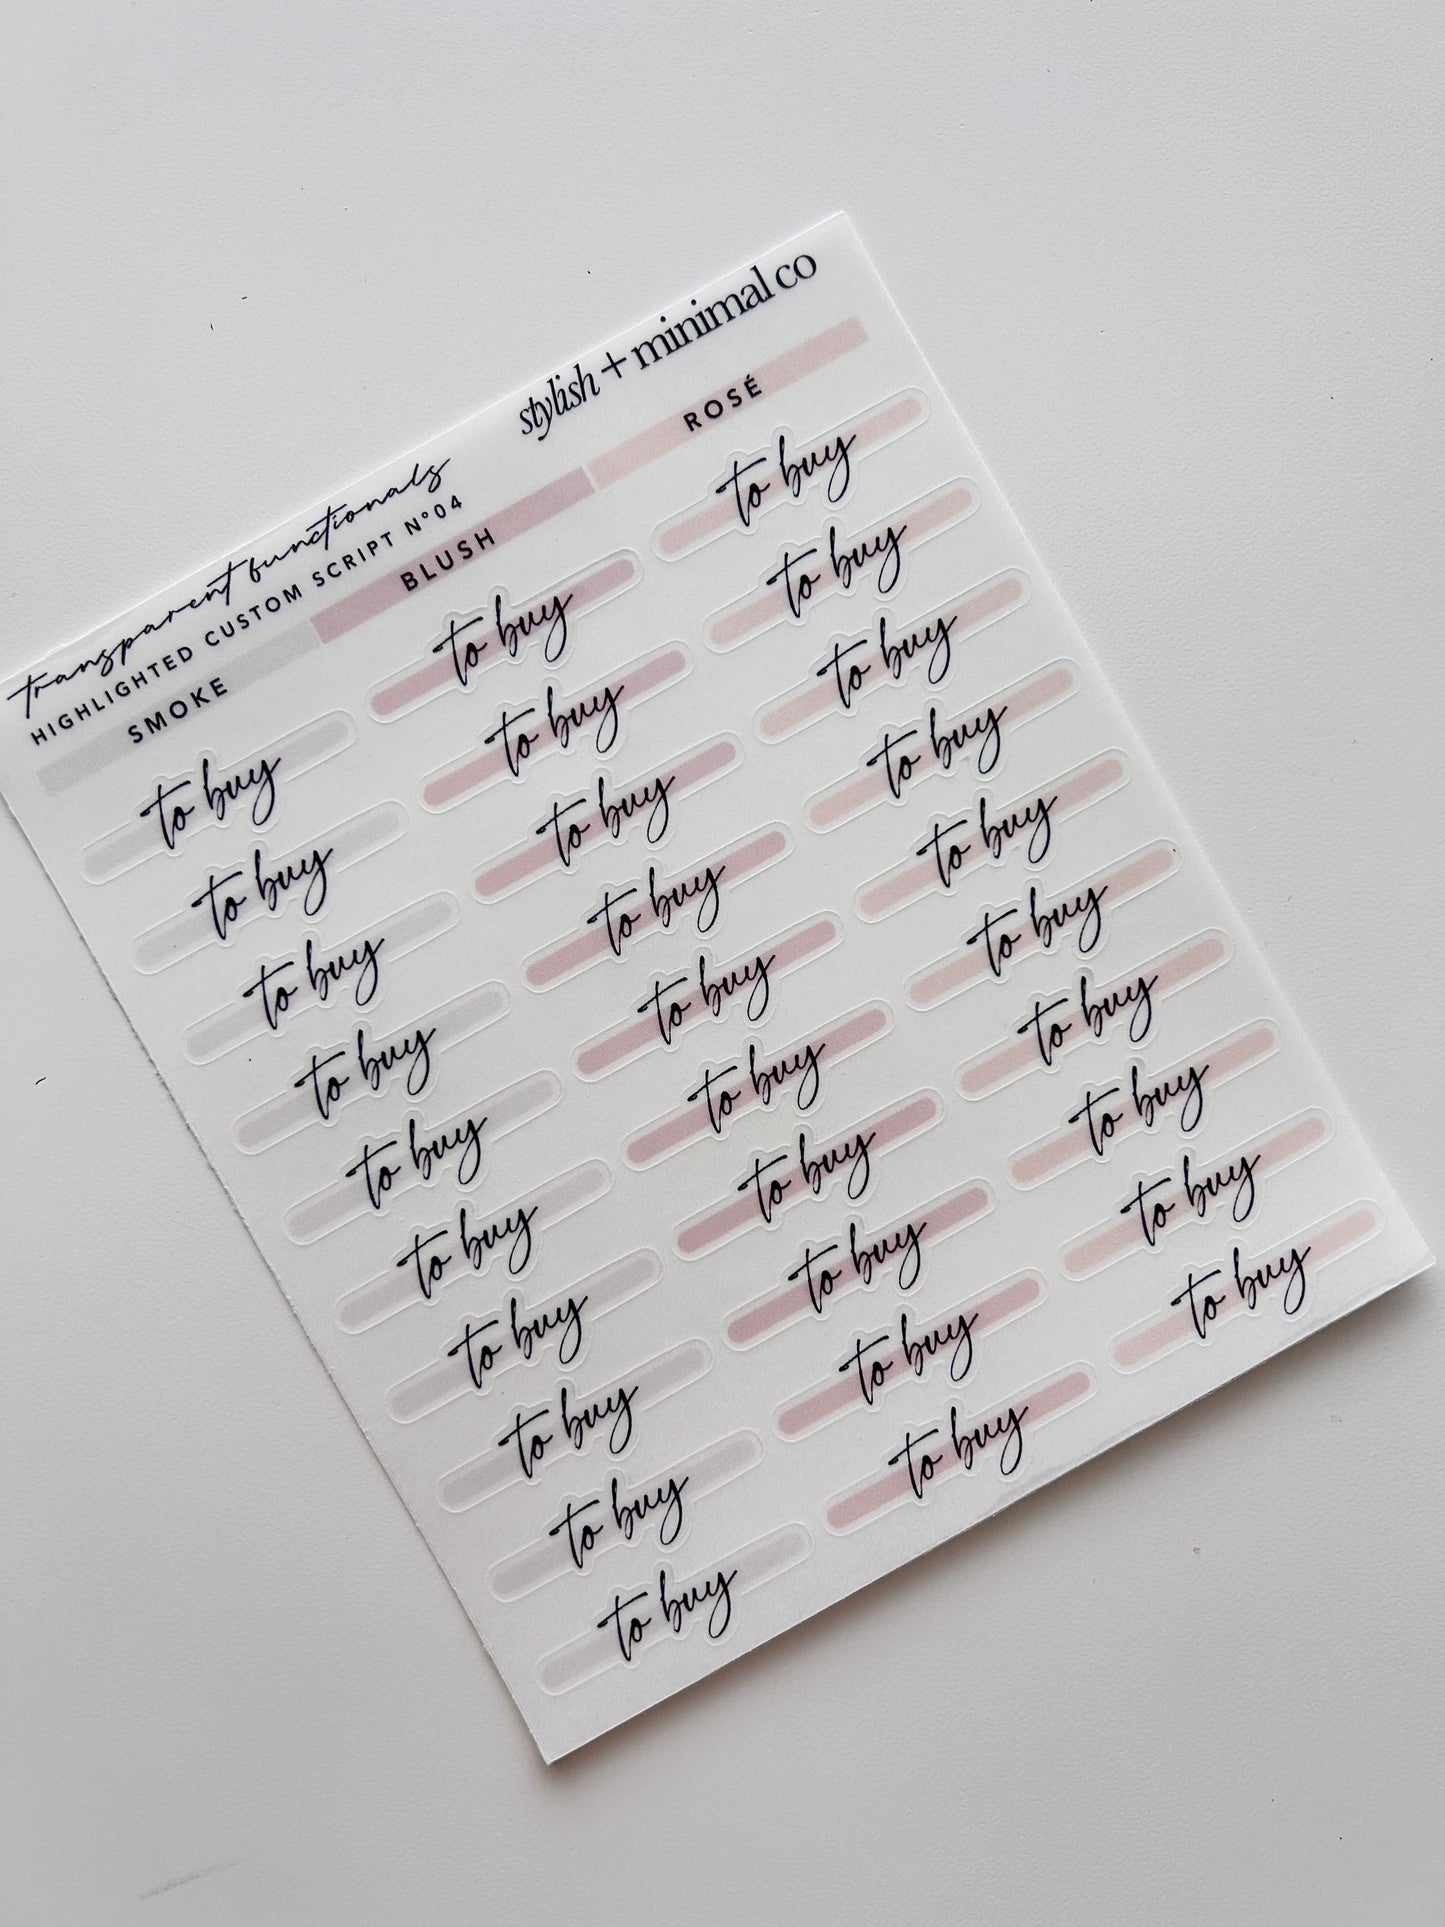 stylish + minimal co
transparent functionals
HIGHLIGHTED CUSTOM SCRIPT N°04
SMOKE BLUSH ROSÉ
to buy to buy to buy
to buy to buy to buy
to buy to buy to buy
to buy to buy to buy
to buy to buy to buy
to buy to buy to buy
to buy to buy to buy
to buy to buy to buy
to buy to buy to buy
to buy to buy to buy